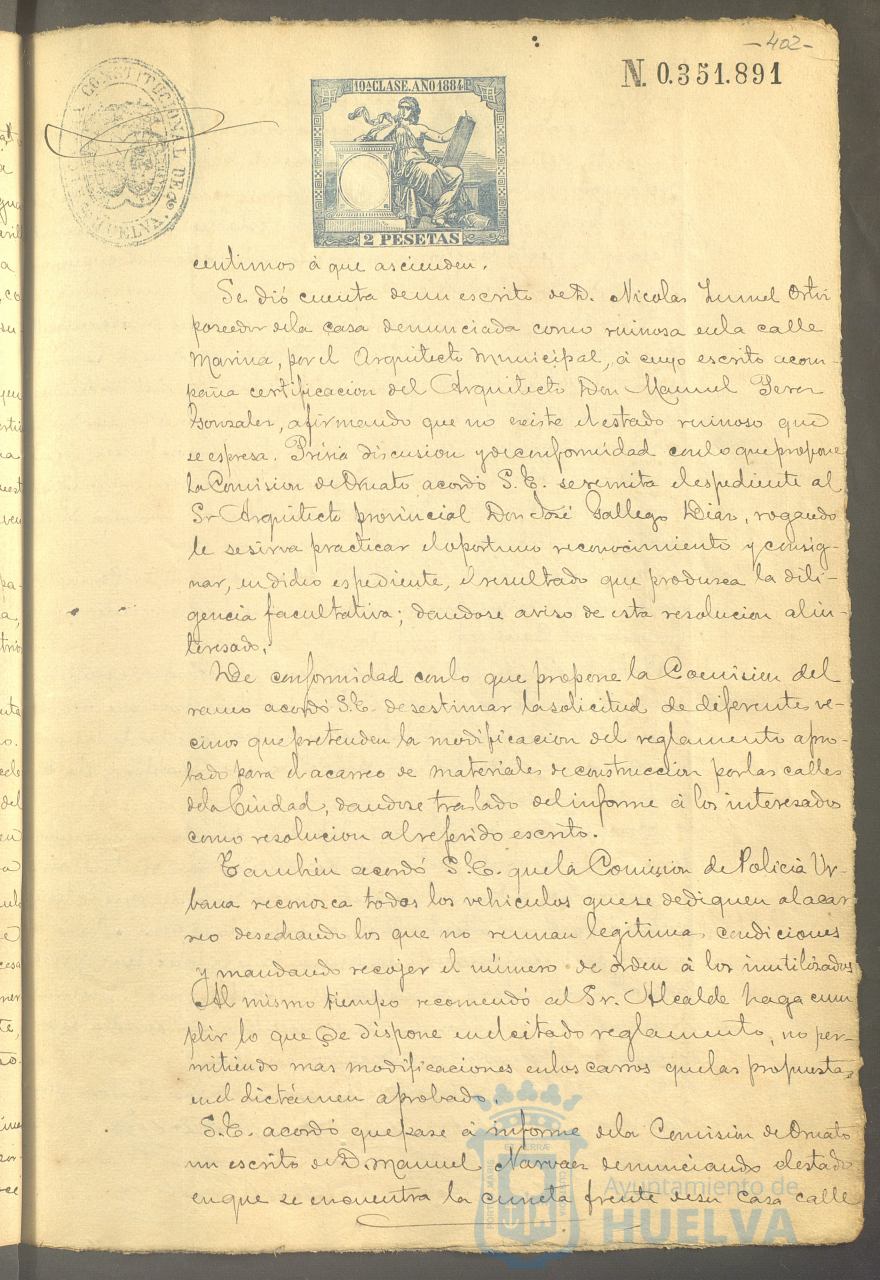 - 402 -
N. 0.351.891
CONSTITUCIONAL DE HUELVA
10ª CLASE. AÑO 1884
2 PESETAS
centimos á que ascienden.
Se dió cuenta de un escrito de D. Nicolas
poseedor de la casa denunciada como ruinosa en la calle
Marina, por el Arquitecto Municipal, á cuyo escrito acom-
paña certificacion del Arquitecto Don Manuel Perez
Gonzalez, afirmando que no existe el estado ruinoso que
se espresa. Prévia discusion y de conformidad con lo que propone
la Comision de Ornato acordó S.E. se remita el espediente al
Sr Arquitecto provincial Don José Gallego Diaz, rogando
le se sirva practicar el oportuno reconocimiento y consig-
nar, en dicho espediente, el resultado que produzca la dili-
gencia facultativa; dandose aviso de esta resolucion al in-
teresado.
De conformidad con lo que propone la Comision del
ramo acordó S.E. desestimar la solicitud de diferentes ve-
cinos que pretenden la modificacion del reglamento apro-
bado para el acarreo de materiales de construccion por las calles
de la Ciudad, dandose traslado del informe á los interesados
como resolucion al referido escrito.
Tambien acordó S.E. que la Comision de Policia Ur-
bana reconozca todos los vehiculos que se dediquen al acar
reo desechando los que no reunan legitimas condiciones
y mandando recojer el número de órden á los inutilizados
Al mismo tiempo recomendó al Sr. Alcalde haga cum
plir lo que se dispone en el citado reglamento, no per-
mitiendo mas modificaciones en los carros que las propuestas
en el dictámen aprobado.
S.E. acordó que pase á informe de la Comision de Ornato
un escrito de D. Manuel Narvaez denunciando el estado
en que se encuentra la cuneta frente de su casa calle
Ayuntamiento de
HUELVA